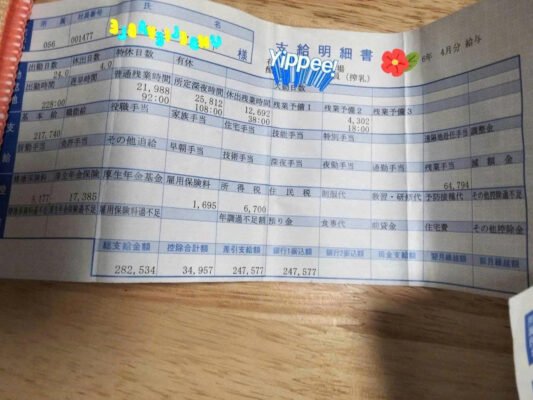 所属 社員番号 氏 名
056 001477 様 支給明細書 6年 4月分 給与
(搾乳)
出勤日数 休出日数 特休日数 有休 欠勤日数
24.0 4.0
出勤時間 遅早時間 普通残業時間 所定深夜時間 休出残業時間 残業予備1 残業予備2 残業予備3
21,988 25,812 12,692 4,302
228:00 92:00 108:00 38:00 18:00
基本給 職能給 役職手当 家族手当 住宅手当 技能手当 特別手当 遠隔地赴任手当 調整金
217,740
皆勤手当 免許手当 その他追給 早朝手当 技術手当 深夜手当 夜勤手当 通勤手当 精勤手当 減額金
64,794
健康保険料 厚生年金保険 厚生年金基金 雇用保険料 所得税 住民税 制服代 教習・研修代 予防接種代 その他控除
17,385 1,695 6,700
雇用保険料過不足 年調過不足額 預り金 食事代 前貸金 住宅費 その他控除金
総支給金額 控除合計額 差引支給額 銀行1振込額 銀行2振込額 現金支給額 翌月繰越額 前月繰越額
282,534 34,957 247,577 247,577
Yippee!